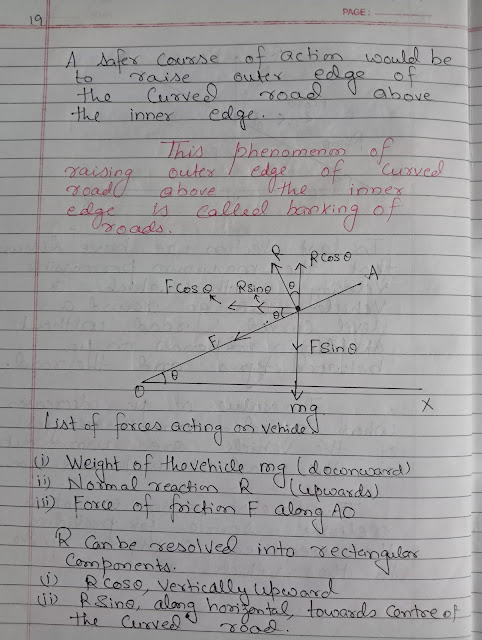 PAGE:
19
A safer course of action would be
to raise outer edge of
the Curved road above
the inner edge.
This phenomenon of
raising outer edge of curved
road above the inner
edge is called banking of
roads.
R
Rcosθ
A
Fcosθ
Rsinθ
θ
θ
F
Fsinθ
θ
O
mg
X
List of forces acting on vehicle
(i) Weight of the vehicle mg (downward)
ii) Normal reaction R (upwards)
iii) Force of friction F along AO
R can be resolved into rectangular
Components.
(i) Rcosθ, vertically upward
(ii) Rsinθ, along horizontal, towards Centre of
the curved road.